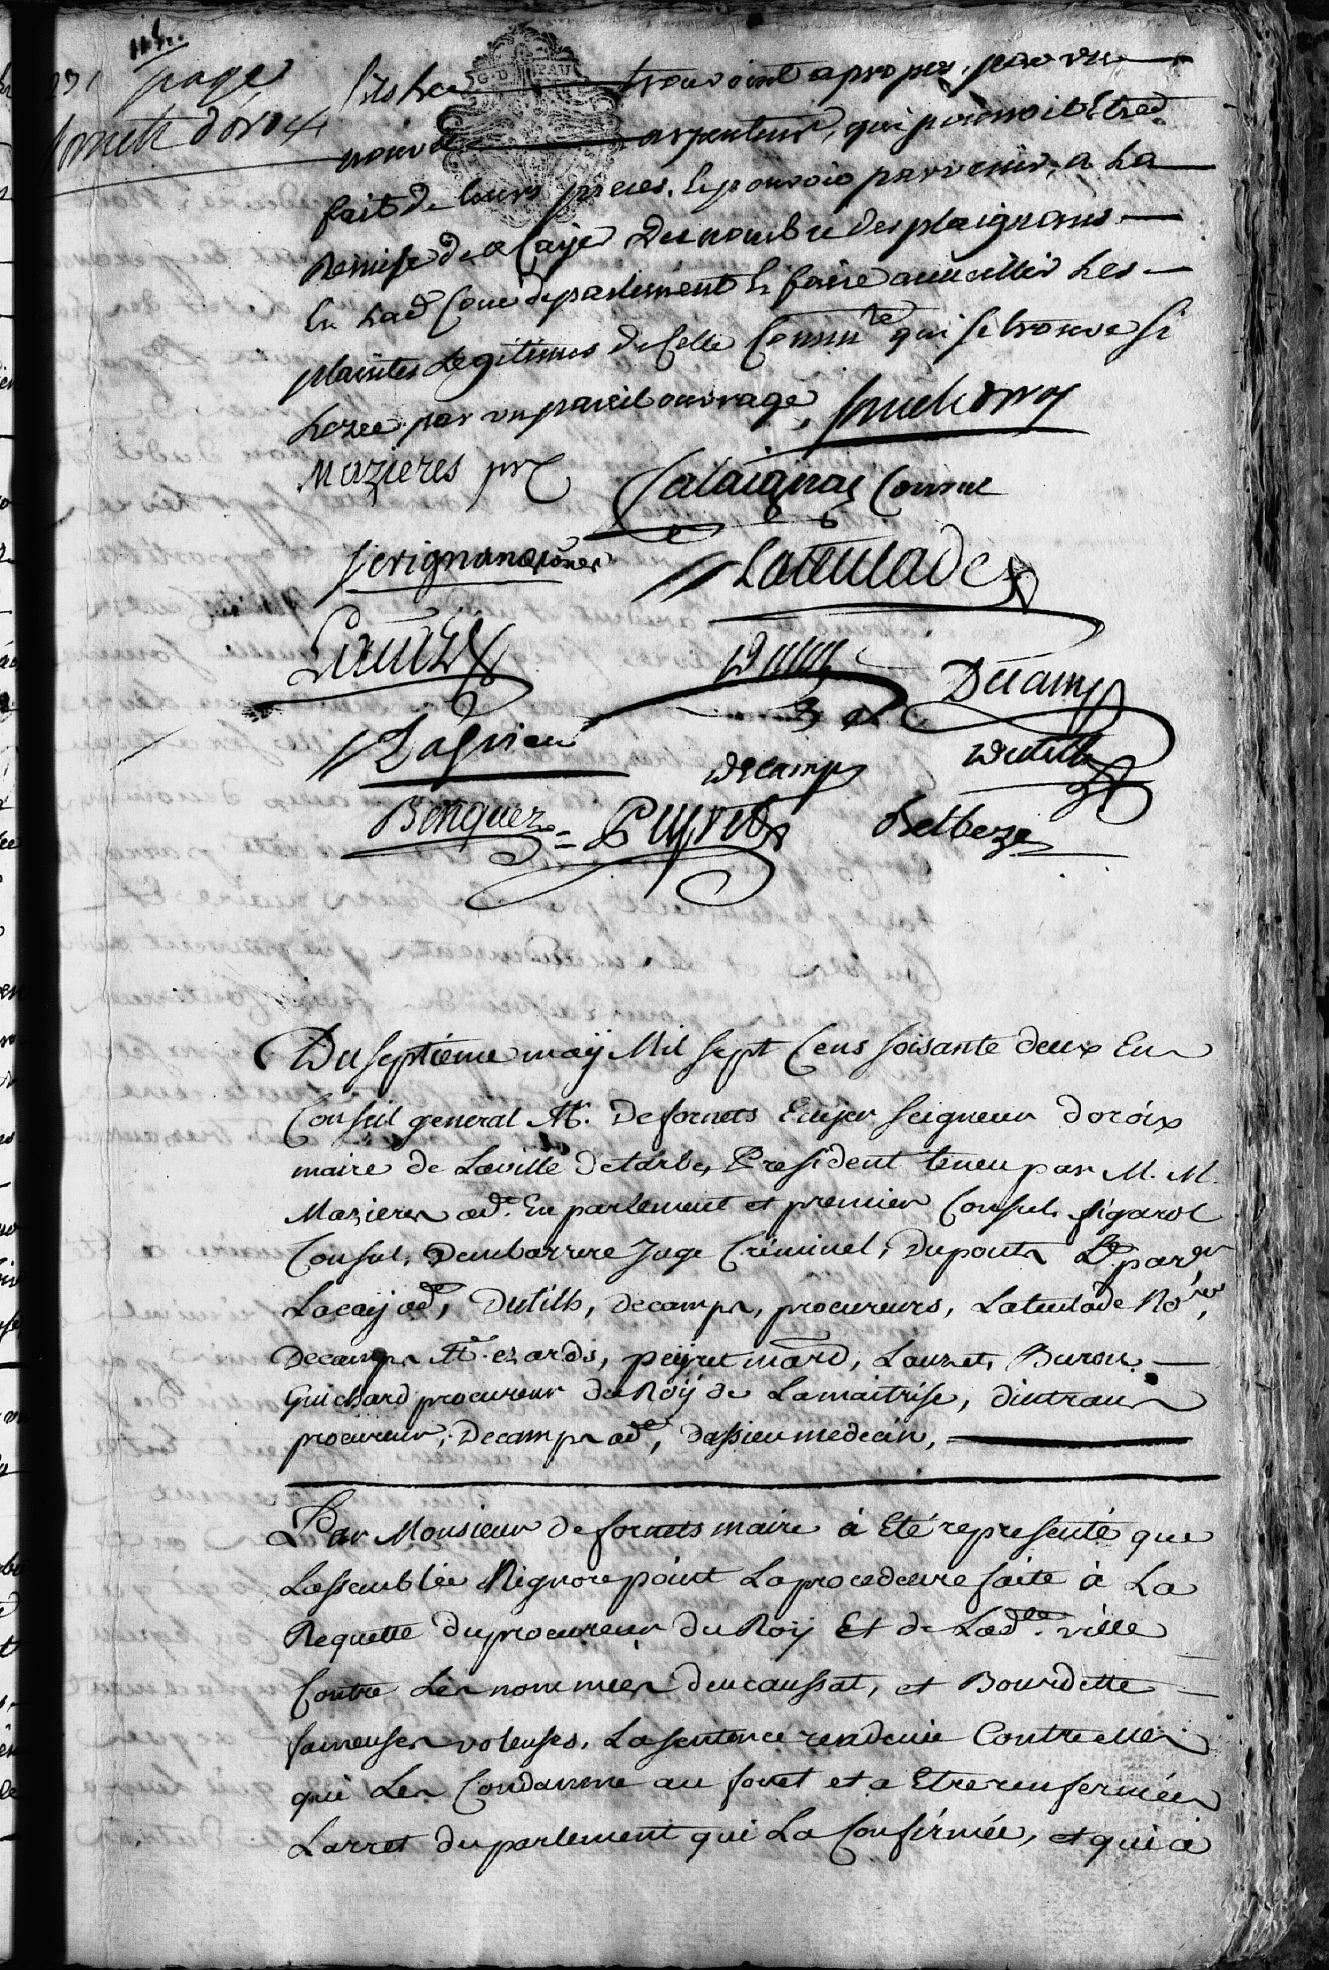 page
G. D. PAU
trouvoint a propos, par un
nouvel arpenteur, qui pourroit Etre
fait de leurs pieces, Et pouvoir parvenir, a La
Remise de ce Cayer du nombre des plaignans
En Lad. Cour du parlement Et faire accueillir Les
plaintes Legitimes de Celle Commte qui se trouve si
Lezée par un pareil ouvrage,
Mazieres
Consul
Latulade
Decamps
Dutilh
decamps
Peyret
Belbeze
Du septième maÿ Mil Sept Cens soisante deux En
Conseil general Mr. De fornets Ecuyer Seigneur doroix
maire de La ville de tarbe, President tenu par M. M.
Mazieres ad. En parlement et premier Consul, figarol
Consul, Dembarrere Juge Criminel, Dupont
Lacaÿ adt, Dutilh, decamps, procureurs, Latulade No.res,
Decamps Mr. ez ards, peÿret mard, Lauzet, Buron,
Guichard procureur du Roÿ de La maitrise, dintrans
procureur, Decamps adt, dassieu medecin,
Par Monsieur de fornets maire à Eté representé que
Lassemblée N'ignore point La procedeure faite à La
Requette du procureur du Roÿ Et de Ladte. ville
Contre Les nommées ducaussat, et Bourdette
fameuses voleuses, La sentence rendeüe Contre elles
qui Les Condamne au fouet et a Etre renfermées
Larret du parlement qui La Confirmée, et qui a